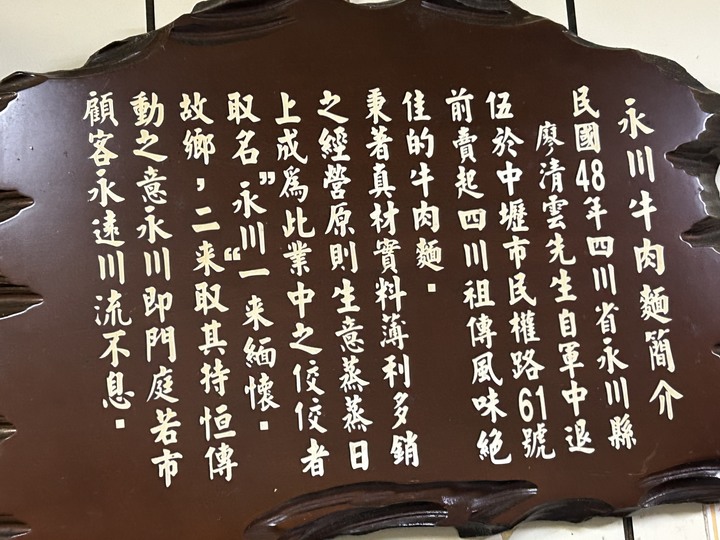 永川牛肉麵簡介
民國48年四川省永川縣
廖清雲先生自軍中退
伍於中壢市民權路61號
前賣起四川祖傳風味絕
佳的牛肉麵。
秉著真材實料薄利多銷
之經營原則生意蒸蒸日
上成為此業中之佼佼者
取名”永川“一來緬懷。
故鄉,二來取其持恒傳
動之意永川即門庭若市
顧客永遠川流不息。